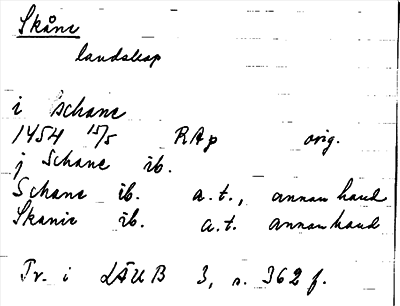 Skåne
landskap
i Schane
1454 15/5 RAp orig.
j Schane ib.
Schane ib. a.t., annan hand
Skanie ib. a.t. annan hand
Tr. i LÄUB 3, s. 362 f.